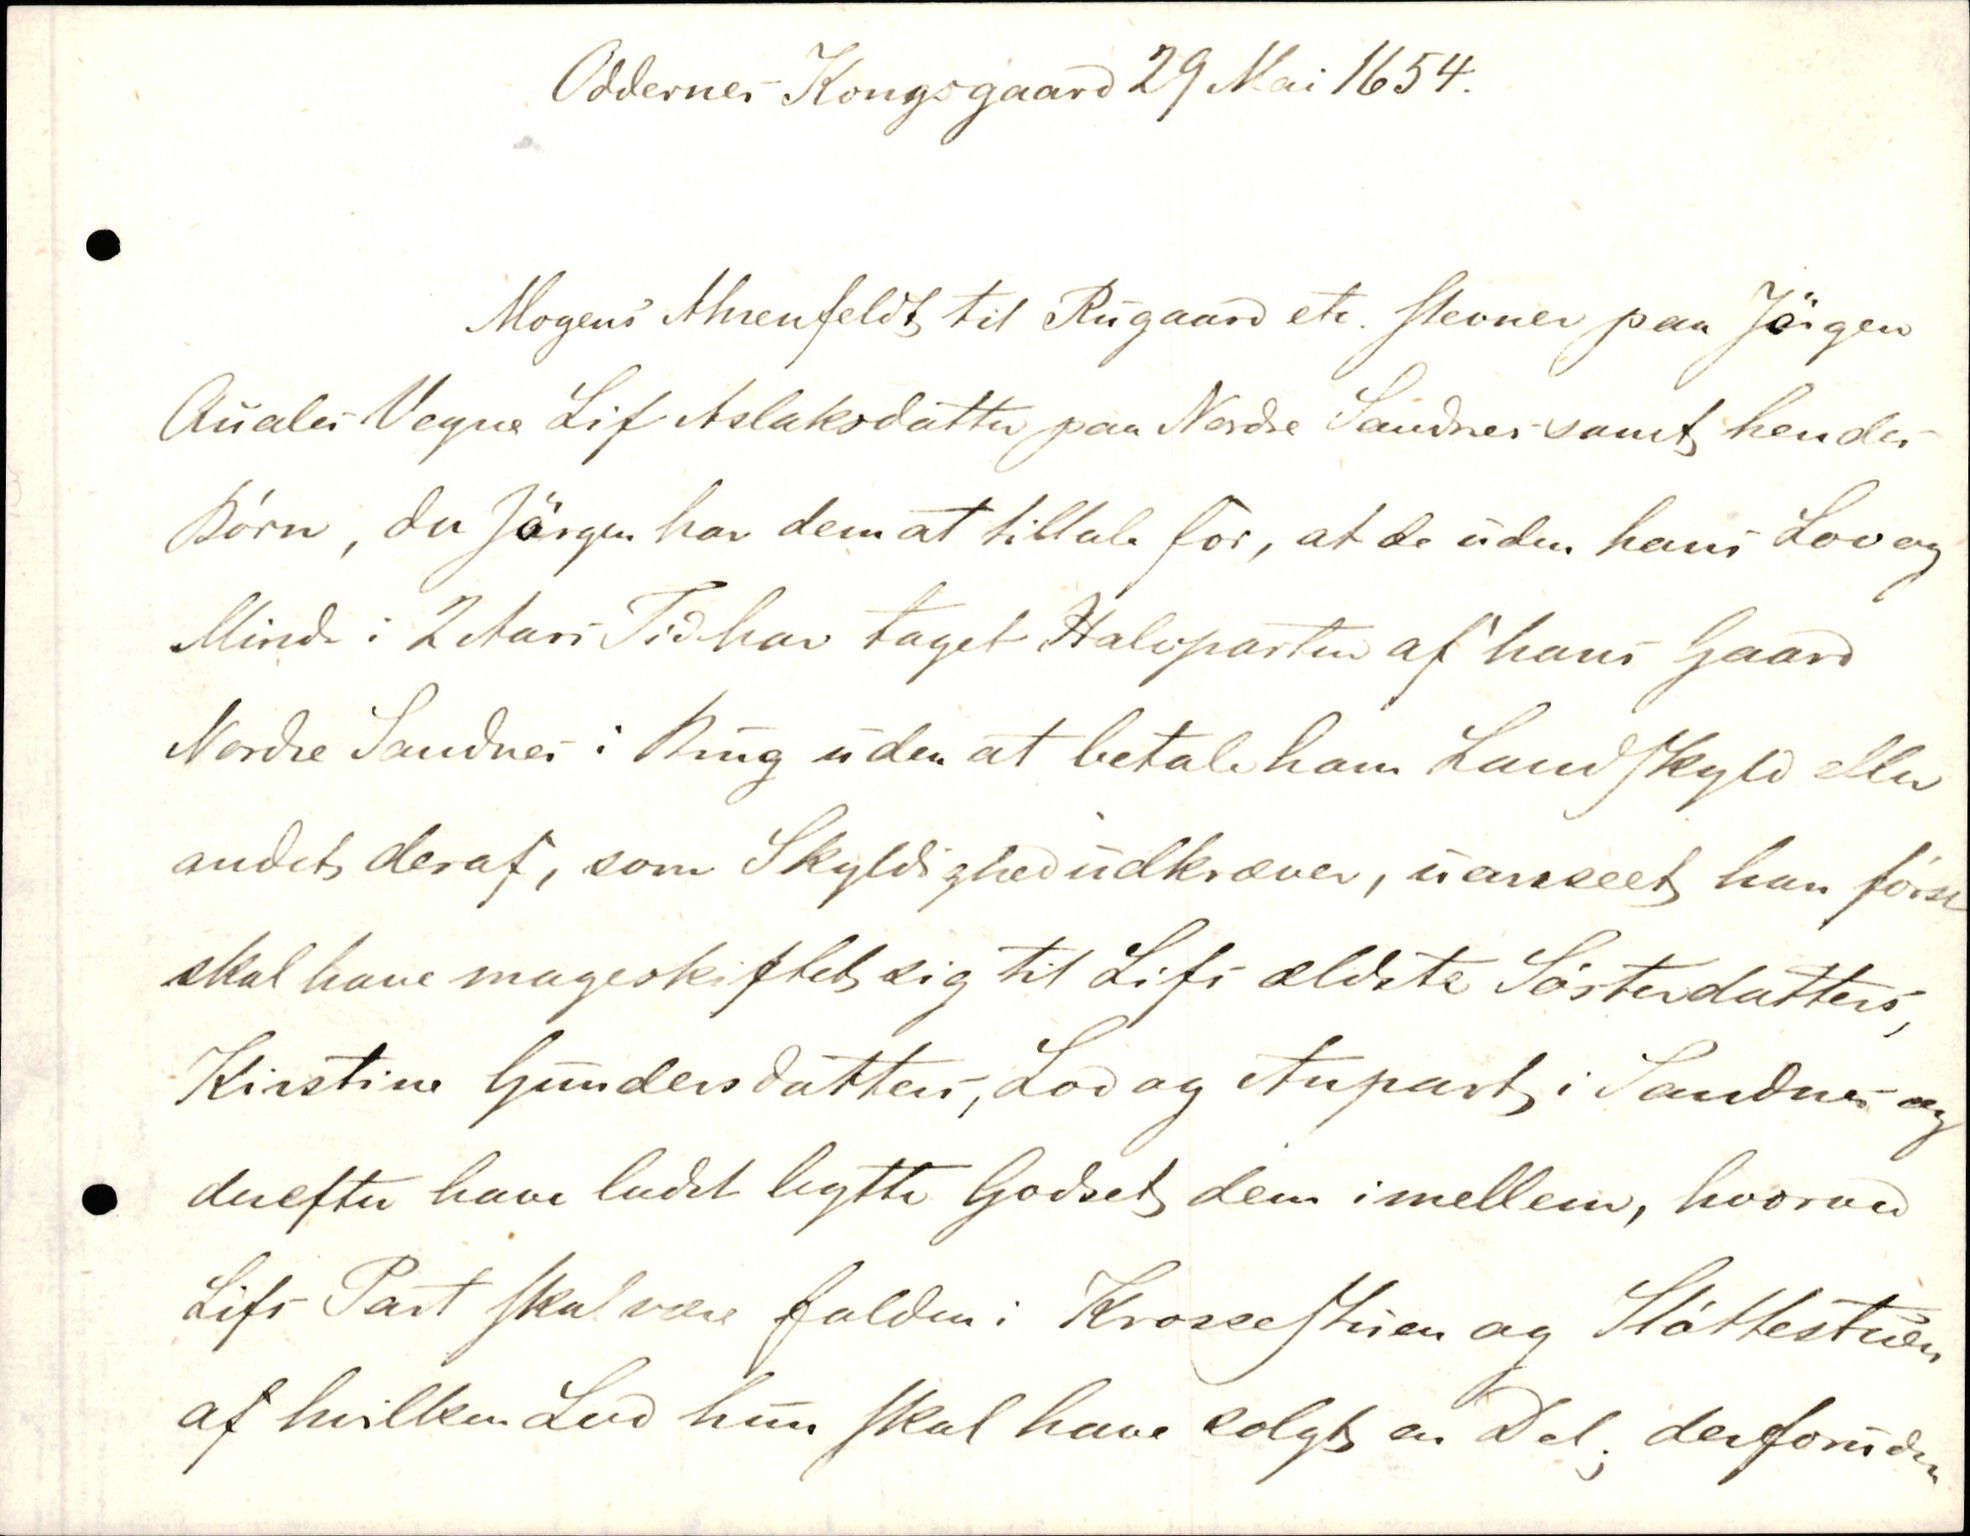 Oddernes Kongsgaard 29 Mai 1654.
Mogens Ahrenfeldt til Rugaard etc. stevner paa Jörgen
Quales Vegne Lif Aslaksdatter paa Nordre Sandnes samt hendes
Börn, da Jörgen har dem at tiltale for, at de uden hans Lov og
Minde i 2 Aars Tid har taget Halvparten af hans Gaard
Nordre Sandnes i Brug uden at betale ham Landskyld eller
andet deraf, som Skyldighed udkræver, uanseet han först
skal have mageskiftet sig til Lifs ældste Sösterdatters,
Kirstine Gundersdatters, Lod og Anpart i Sandnes og
derefter have ladet bytte Godset dem imellem, hvorved
Lifs Part skal være falden i Krossestuen og Slöttestuen
af hvilken Lod hun skal have solgt en Del; desforuden